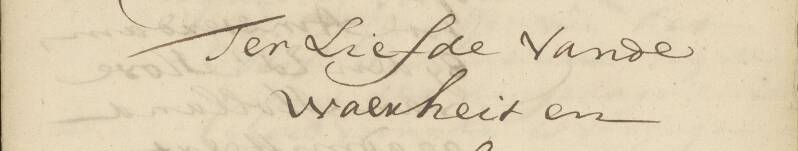 Ter Liefde Vande
waerheit en